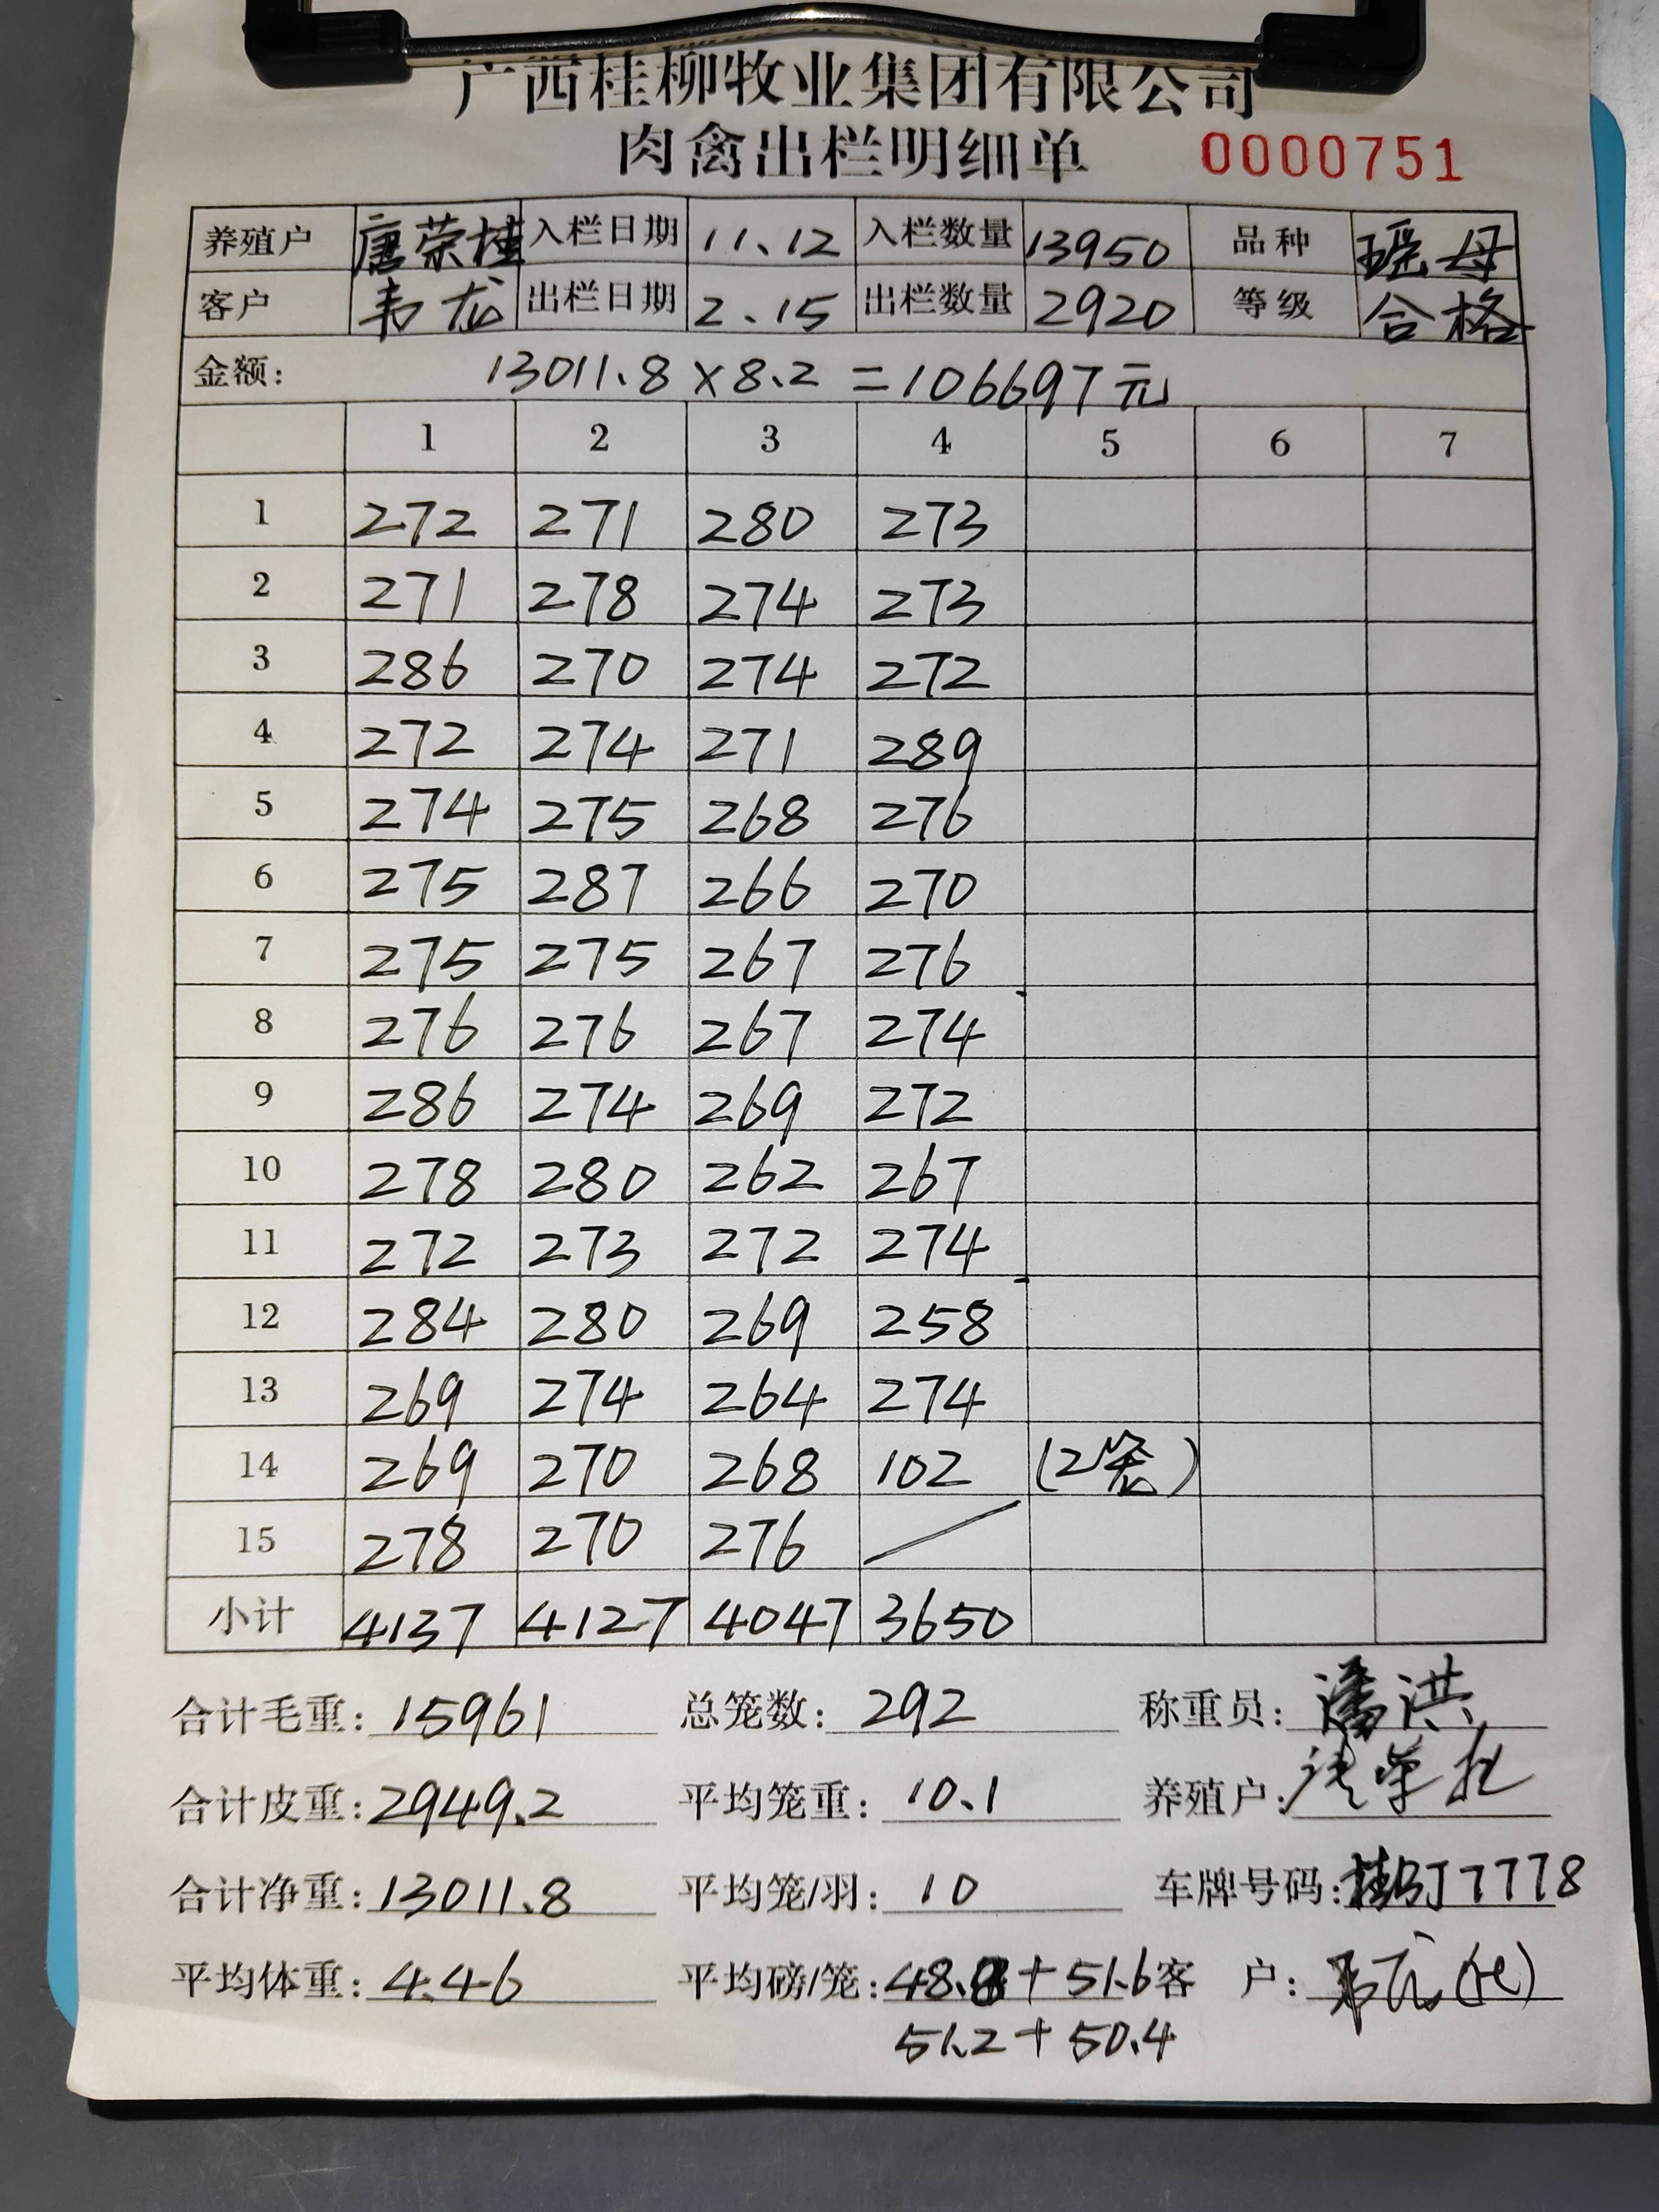 广西桂柳牧业集团有限公司
肉禽出栏明细单 0000751
养殖户 唐荣桂 入栏日期 11.12 入栏数量 13950 品种 瑶母
客户 韦龙 出栏日期 2.15 出栏数量 2920 等级 合格
金额: 13011.8×8.2=106697元
1 2 3 4 5 6 7
1 272 271 280 273
2 271 278 274 273
3 286 270 274 272
4 272 274 271 289
5 274 275 268 276
6 275 287 266 270
7 275 275 267 276
8 276 276 267 274
9 286 274 269 272
10 278 280 262 267
11 272 273 272 274
12 284 280 269 258
13 269 274 264 274
14 269 270 268 102 (2笼)
15 278 270 276 /
小计 4137 4127 4047 3650
合计毛重: 15961 总笼数: 292 称重员: 潘洪
合计皮重: 2949.2 平均笼重: 10.1 养殖户:
合计净重: 13011.8 平均笼/羽: 10 车牌号码: 7778
平均体重: 4.46 平均磅/笼: 48.8+51.6 客 户:
51.2+50.4